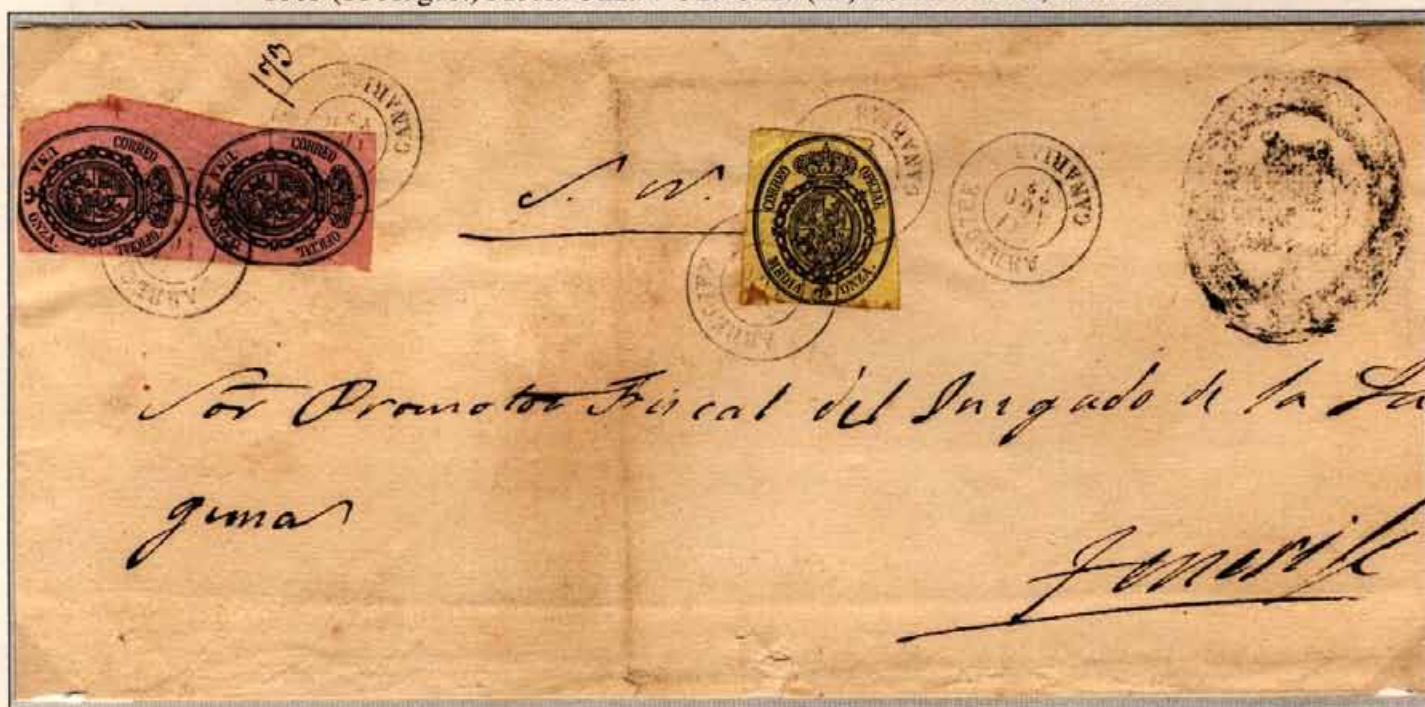 173
CORREO OFICIAL
UNA ONZA.
CORREO OFICIAL
UNA ONZA.
CANARI
ARREC
S. N.
CORREO OFICIAL
MEDIA ONZA.
CANARIAS
ARRECIFE
CANARIAS
ARRECIFE
Sor Promotor Fiscal del Juzgado de la La
guna
Tenerife